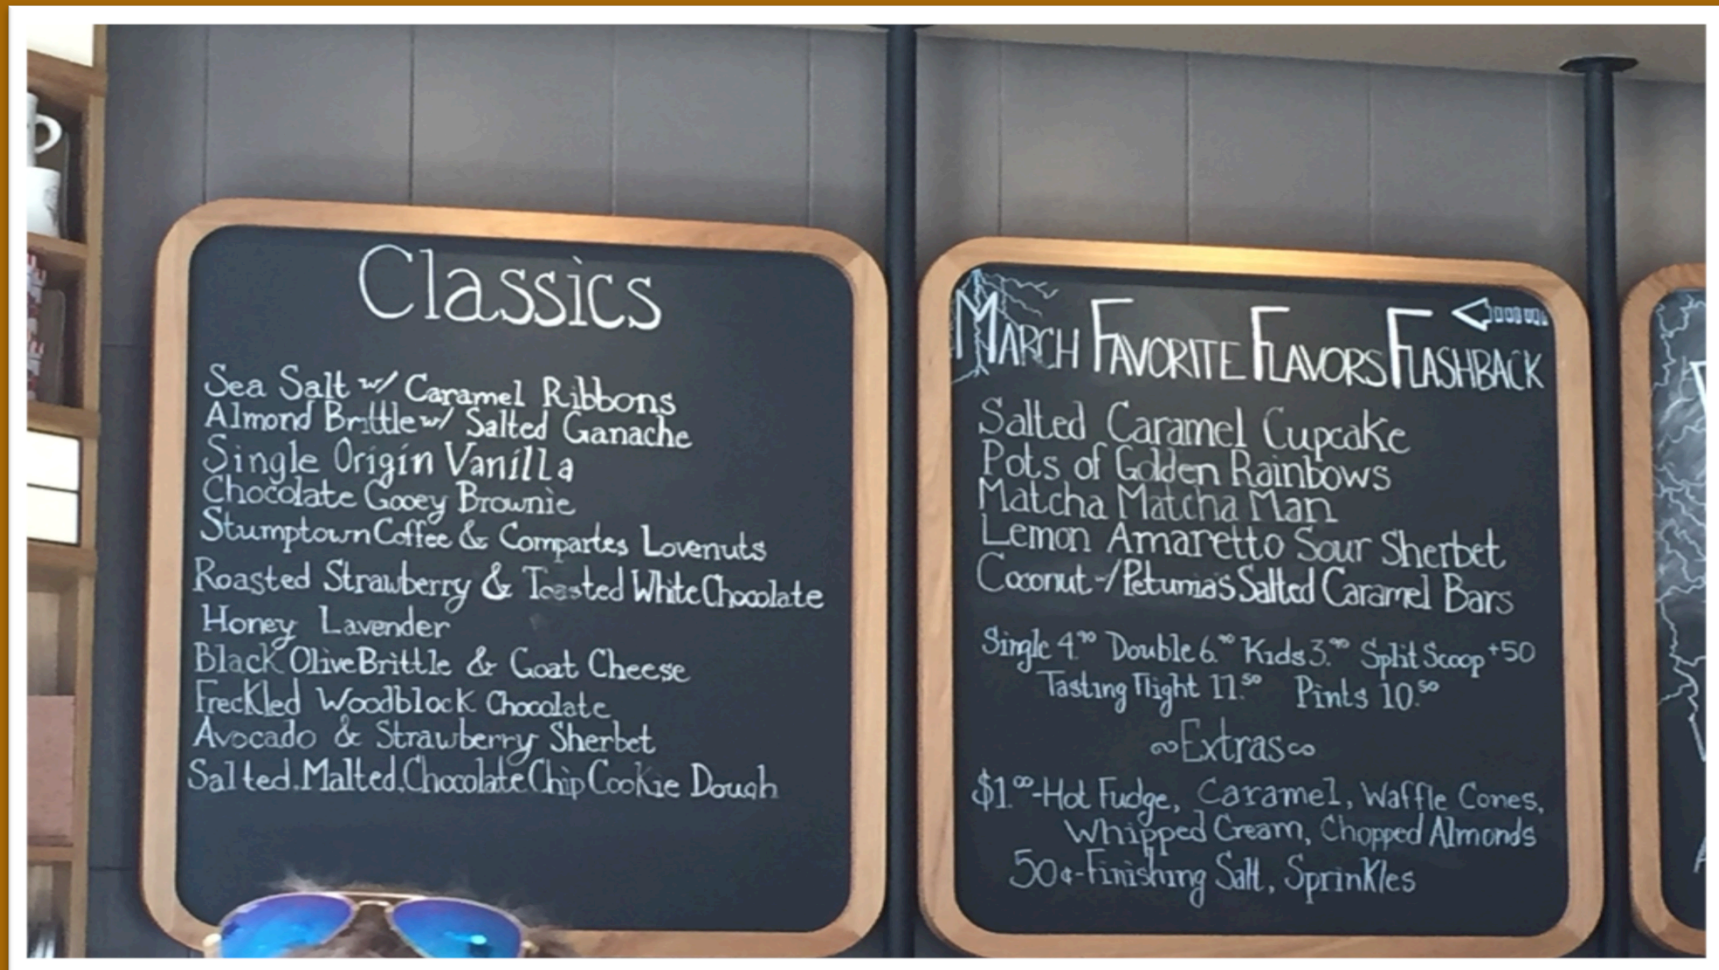 Classics
Sea Salt w/ Caramel Ribbons
Almond Brittle w/ Salted Ganache
Single Origin Vanilla
Chocolate Gooey Brownie
Stumptown Coffee & Compartes Lovenuts
Roasted Strawberry & Toasted White Chocolate
Honey Lavender
Black Olive Brittle & Goat Cheese
Freckled Woodblock Chocolate
Avocado & Strawberry Sherbet
Salted, Malted, Chocolate Chip Cookie Dough
MARCH FAVORITE FLAVORS FLASHBACK
Salted Caramel Cupcake
Pots of Golden Rainbows
Matcha Matcha Man
Lemon Amaretto Sour Sherbet
Coconut w/ Petunia's Salted Caramel Bars
Single 4.90 Double 6.90 Kids 3.90 Split Scoop +50
Tasting Flight 11.50 Pints 10.50
Extras
$1.00-Hot Fudge, Caramel, Waffle Cones,
Whipped Cream, Chopped Almonds
50¢-Finishing Salt, Sprinkles